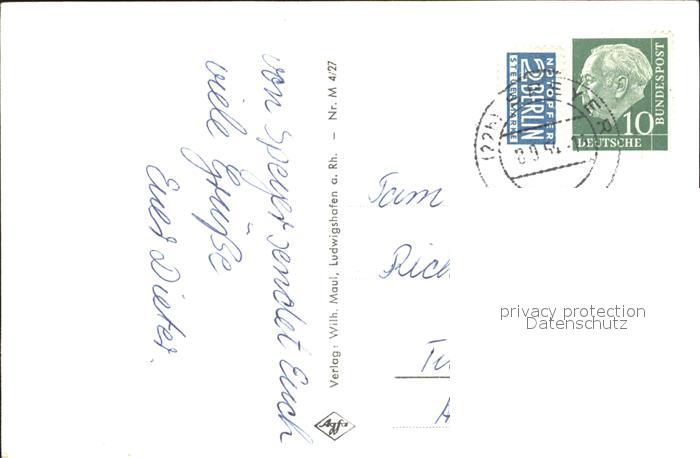 von Speyer sendet Euch
viele Grüße
Euer Dieter.
Verlag: Wilh. Maul, Ludwigshafen a. Rh. – Nr. M 4/27
Agfa
NOTOPFER
2 BERLIN
STEUERMARKE
10
BUNDESPOST
DEUTSCHE
SPEYER
(22b)
Fam
Rich
privacy protection
Datenschutz